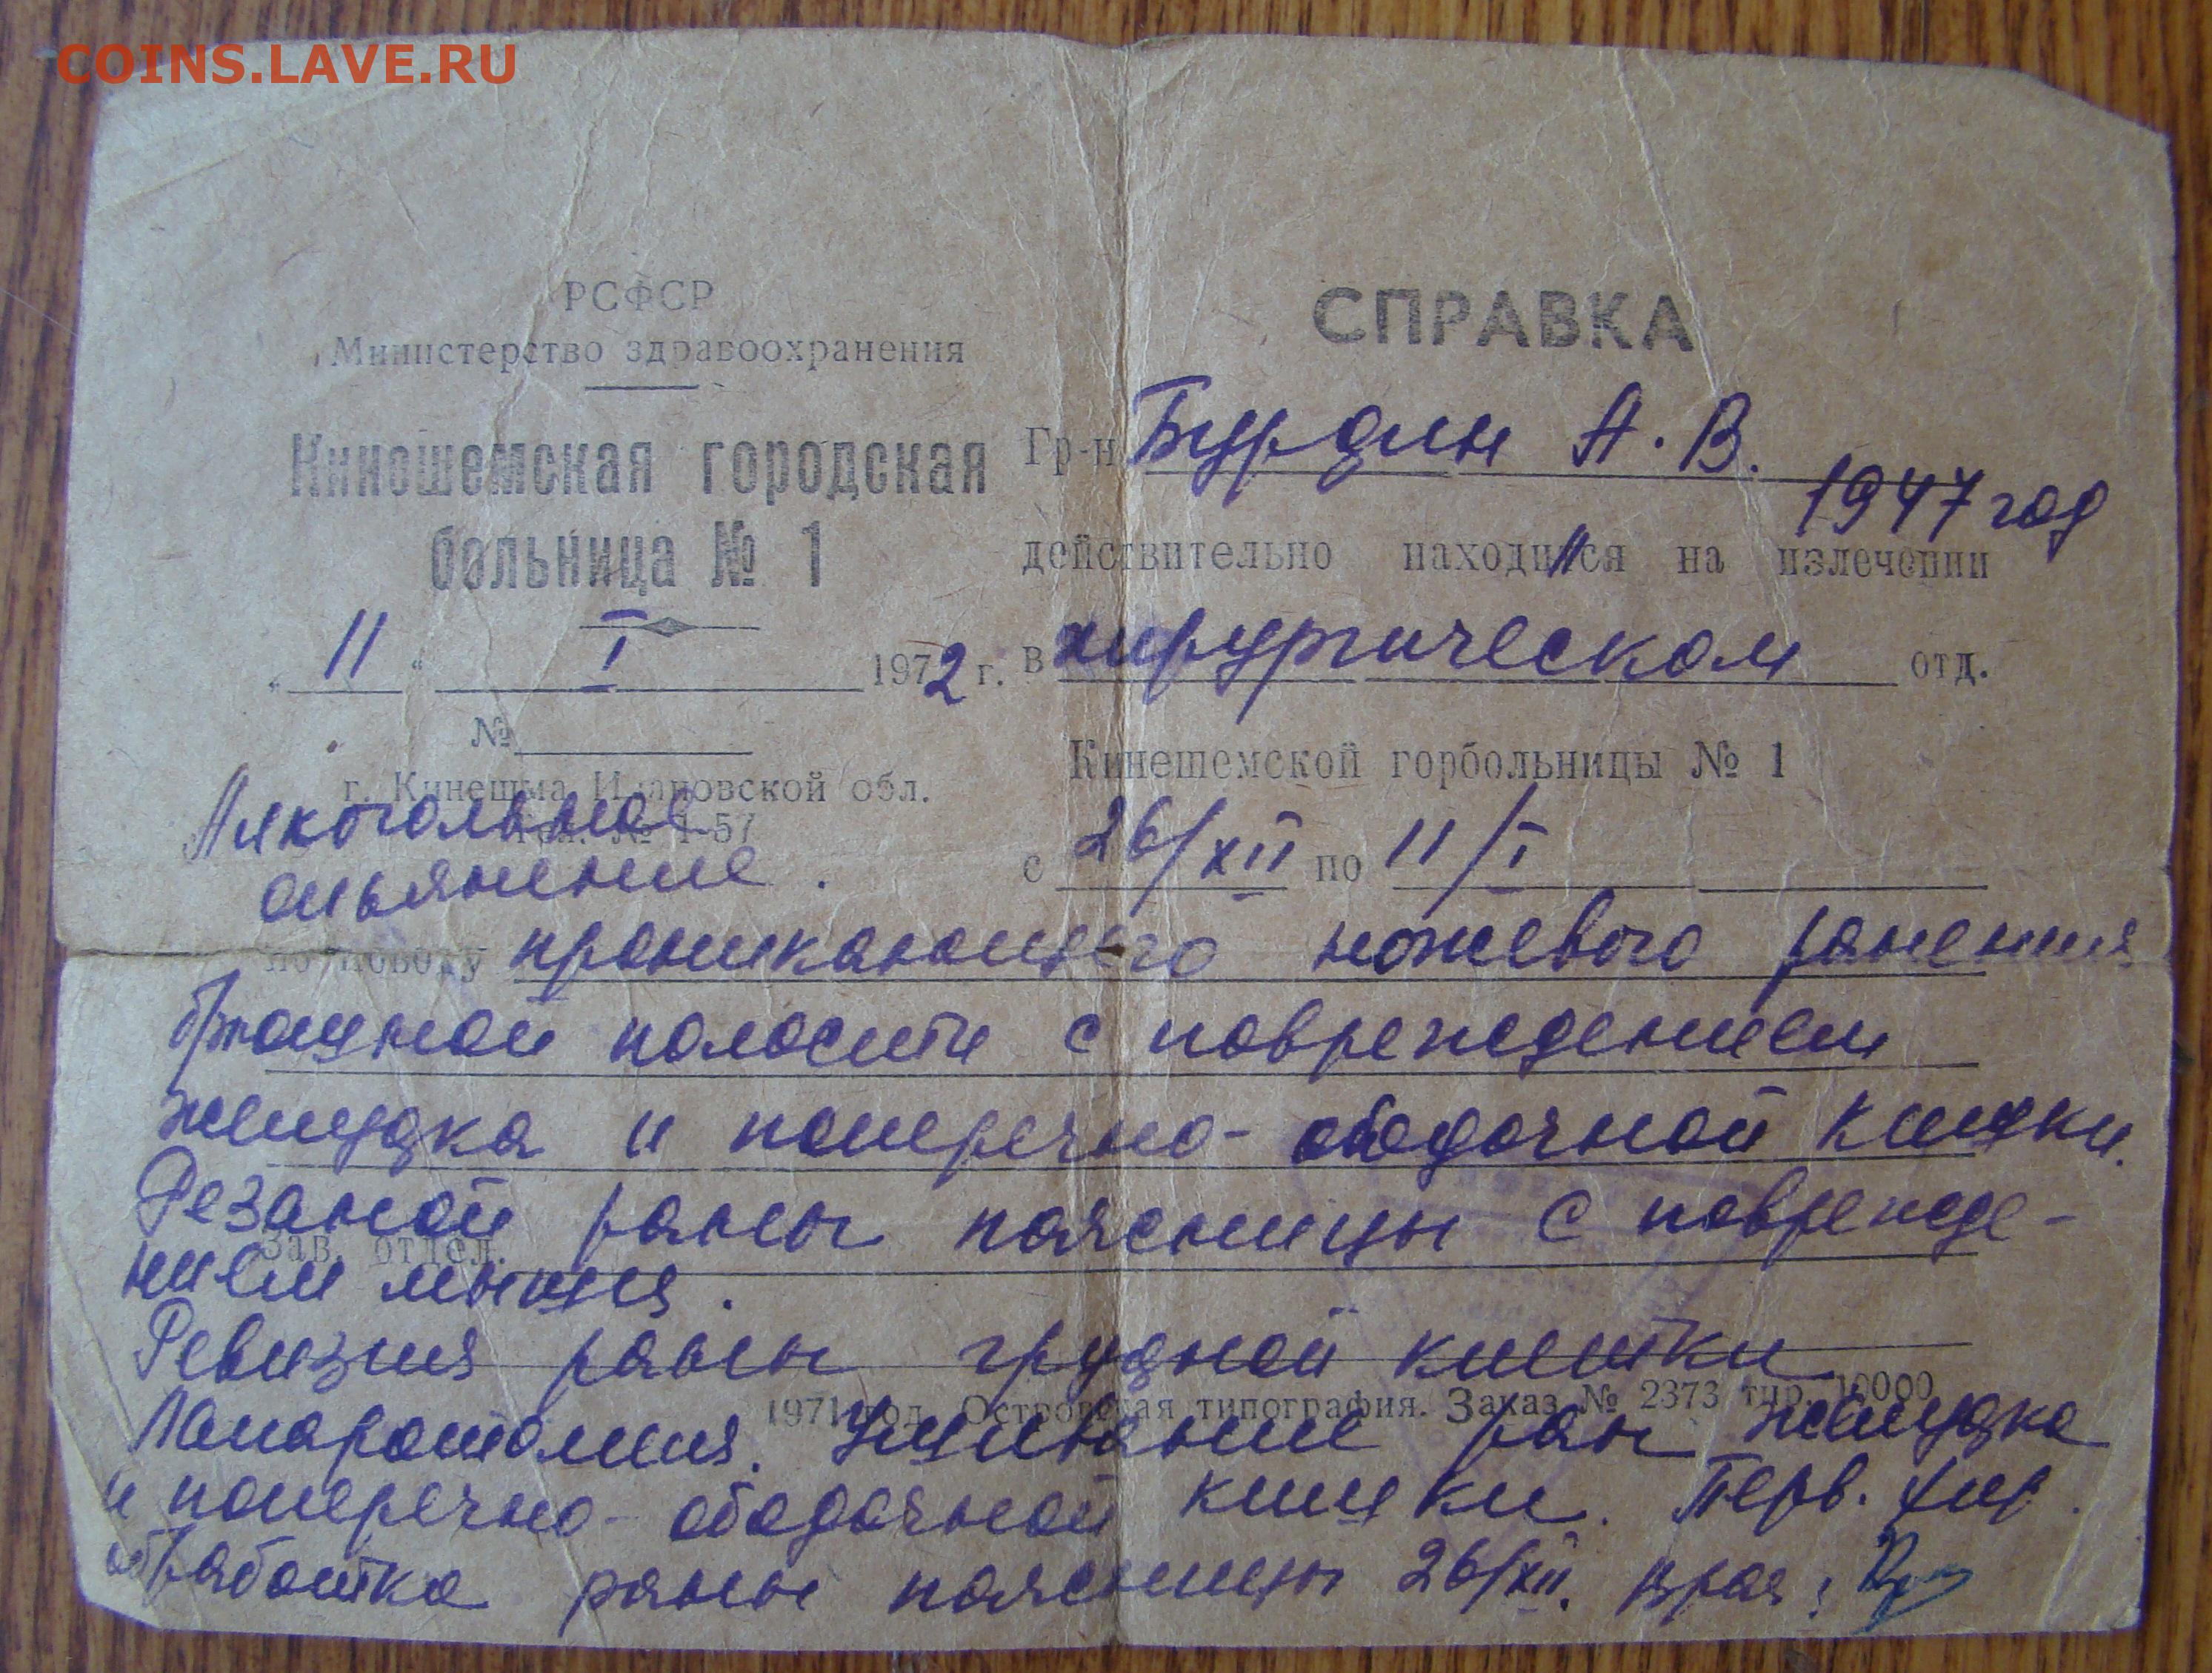 COINS.LAVE.RU
РСФСР
Министерство здравоохранения
Кинешемская городская
больница № 1
„ 11 “ I 1972 г.
№
г. Кинешма Ивановской обл.
Тел. № 1-57
Алкогольное
опьянение.
СПРАВКА
Гр-н Бурдин А. В.
1947 год
действительно находился на излечении
в хирургическом отд.
Кинешемской горбольницы № 1
с 26/XII по 11/I
по поводу проникающего ножевого ранения
брюшной полости с повреждением
желудка и поперечно-ободочной кишки.
Резаной раны поясницы с поврежде-
Зав. отдел.
нием мышц.
Ревизия раны грудной клетки
1971 год. Островская типография. Заказ № 2373 тир. 10000
Лапаротомия. Ушивание ран желудка
и поперечно-ободочной кишки. Перв. хир.
обработка раны поясницы 26/XII. врач: